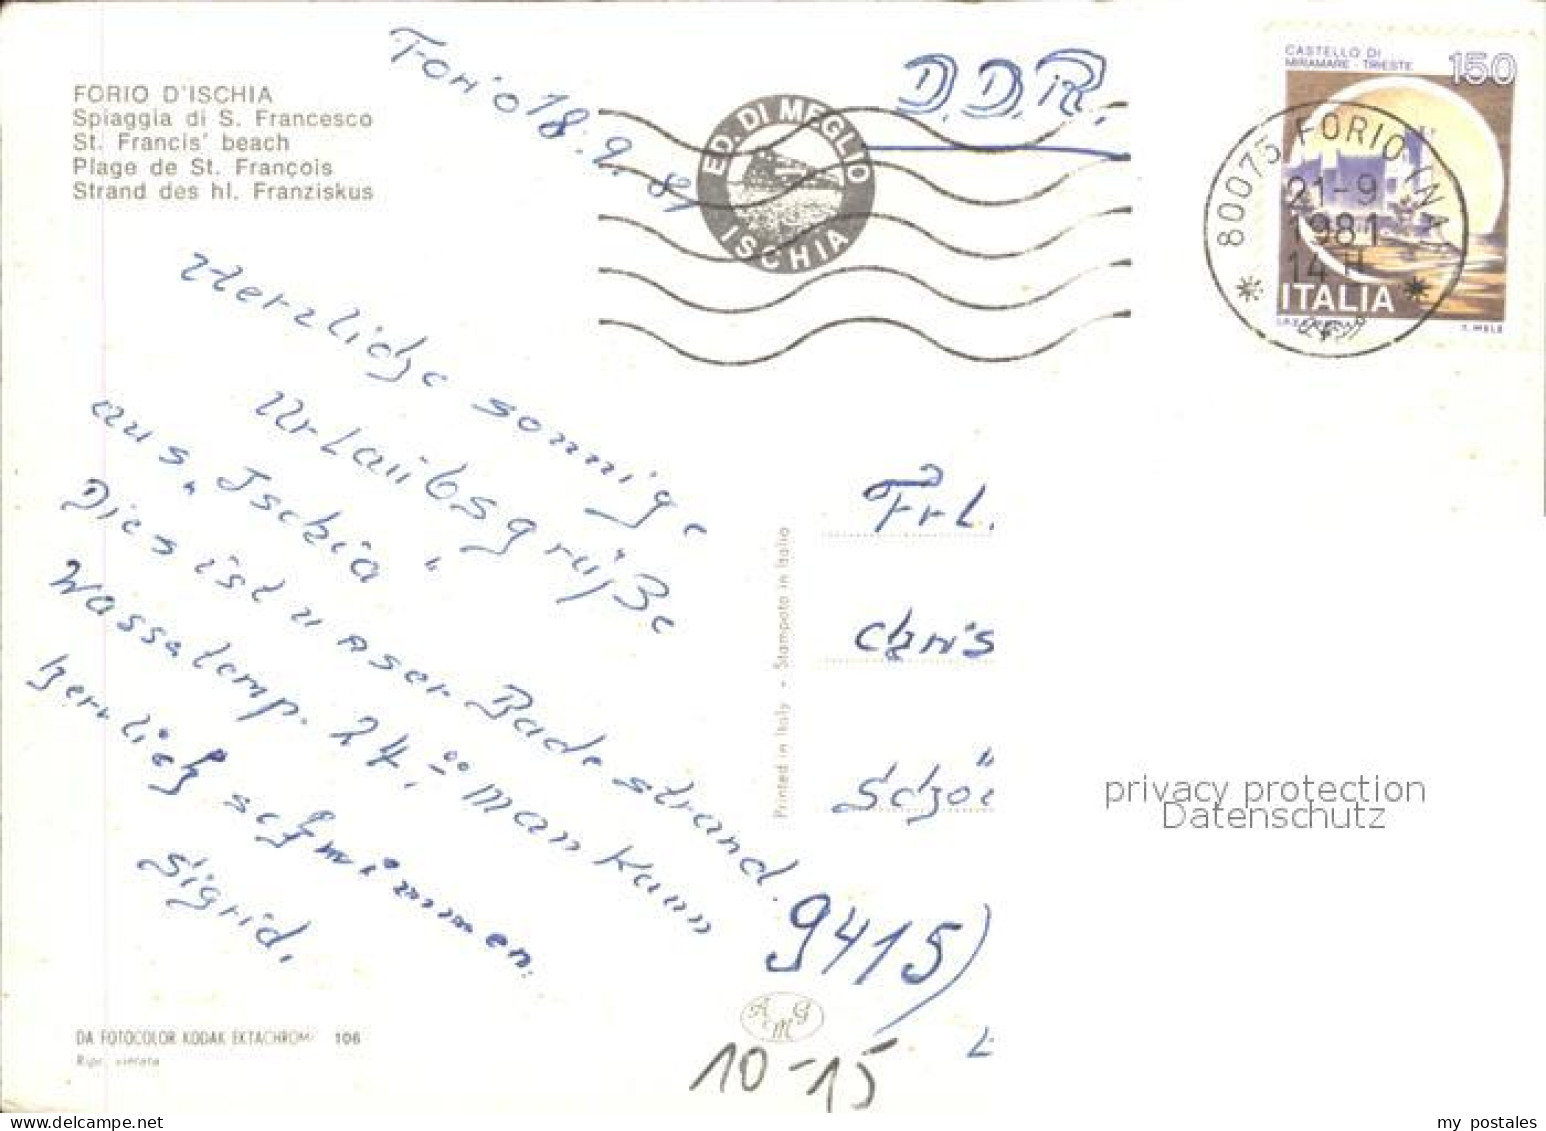 FORIO D'ISCHIA
Spiaggia di S. Francesco
St. Francis' beach
Plage de St. François
Strand des hl. Franziskus
Forio 18.9.81
Herzliche sonnige
Urlaubsgrüße
aus „Ischia“
Dies ist unser Badestrand.
Wassertemp. 24,°° Man kann
herrlich schwimmen.
Sigrid.
DA FOTOCOLOR KODAK EKTACHROME 106
Ripr. vietata
Printed in Italy • Stampato in Italia
ED. DI MEGLIO
ISCHIA
D.D.R.
CASTELLO DI
MIRAMARE - TRIESTE
150
ITALIA
80075 FORIO
21-9
1981
14 H
Frl.
Chris
Schö
9415)
AMG
10-15
privacy protection
Datenschutz
my postales